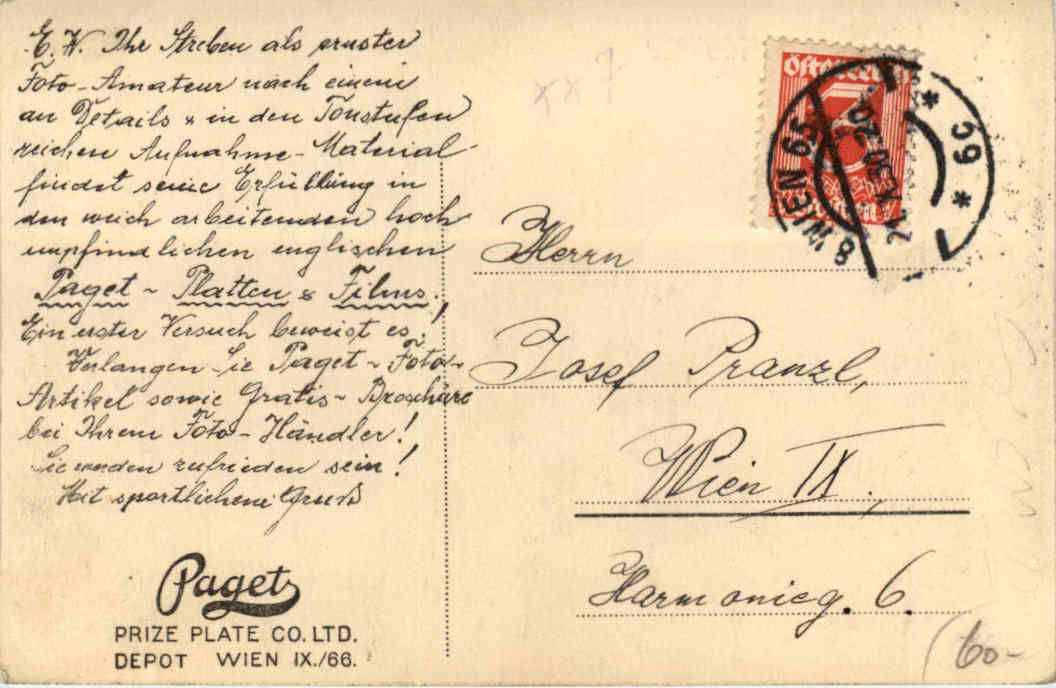 E. W. Ihr Streben als ernster
Foto-Amateur nach einem
an Details & in den Tonstufen
reichen Aufnahme-Material
findet seine Erfüllung in
den weich arbeitenden hoch
empfindlichen englischen
Paget-Platten & Films.
Ein erster Versuch beweist es!
Verlangen Sie Paget-Foto-
Artikel sowie Gratis-Broschüre
bei Ihrem Foto-Händler!
Sie werden zufrieden sein!
Mit sportlichem Gruß
Paget
PRIZE PLATE CO. LTD.
DEPOT WIEN IX./66.
xx 7
Österreich
8 WIEN 65
* 6c *
Herrn
Josef Pranzl,
Wien IX.,
Harmonieg. 6.
60-